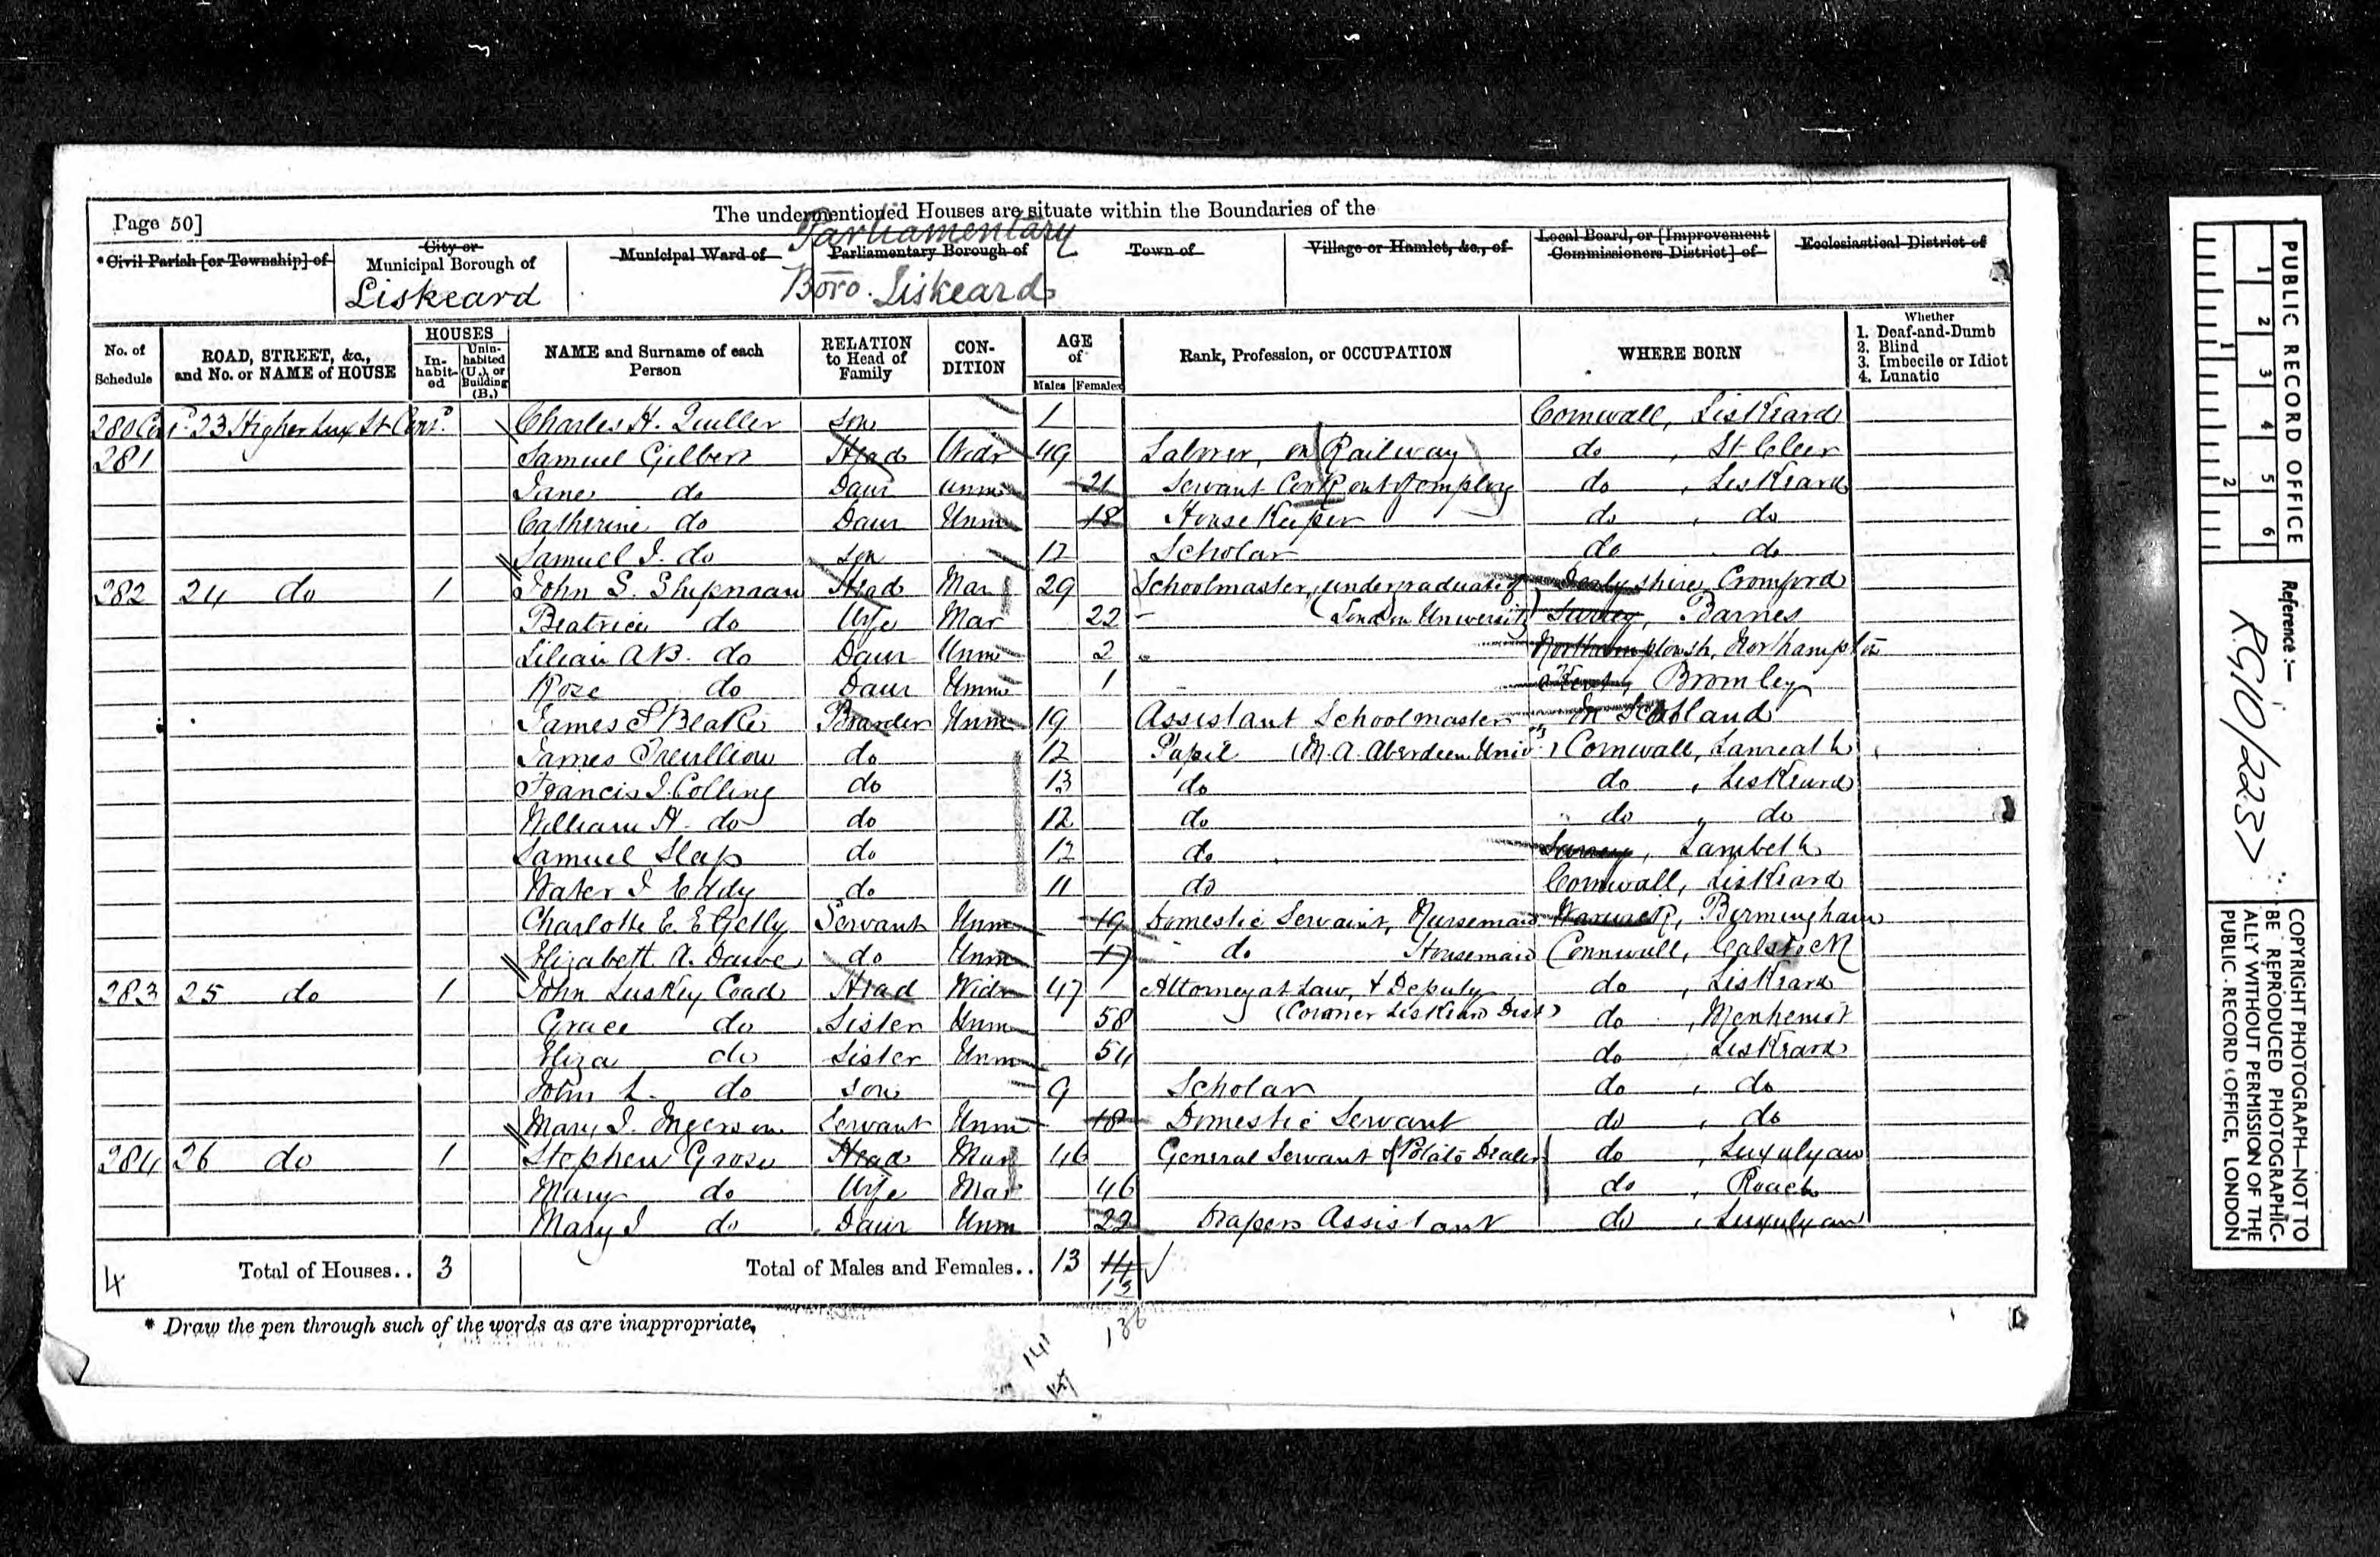 Page 50]
The undermentioned Houses are situate within the Boundaries of the
*Civil Parish [or Township] of
City or Municipal Borough of
Liskeard
Municipal Ward of
Parliamentary Borough of
Parliamentary
Boro. Liskeard
Town of
Village or Hamlet, &c., of
Local Board, or [Improvement Commissioners District] of
Ecclesiastical District of
No. of Schedule
ROAD, STREET, &c., and No. or NAME of HOUSE
HOUSES
In-habit-ed
Unin-habited (U.), or Building (B.)
NAME and Surname of each Person
RELATION to Head of Family
CON-DITION
AGE of
Males Females
Rank, Profession, or OCCUPATION
WHERE BORN
Whether
1. Deaf-and-Dumb
2. Blind
3. Imbecile or Idiot
4. Lunatic
280 23 Higher Lux St Charles H. Quiller Son 1 Cornwall, Liskeard
281 Samuel Gilbert Head Widr 49 Labourer, on Railway do, St Cleer
Jane do Daur Unm 21 Servant Cook out of employ do, Liskeard
Catherine do Daur Unm 18 House Keeper do, do
Samuel J. do Son 12 Scholar do do
282 24 do 1 John S. Shipman Head Mar 29 Schoolmaster, undergraduate of Derbyshire, Cromford
Beatrice do Wife Mar 22 (London University) Surrey, Barnes
Lilian A B. do Daur Unm 2 Northamptonsh, Northampton
Rose do Daur Unm 1 Kent, Bromley
James S Blake Boarder Unm 19 Assistant Schoolmaster In Scotland
James Trewillion do 12 Pupil (M.A. Aberdeen Univ.) Cornwall, Lanreath
Francis J. Colling do 13 do do, Liskeard
William H. do do 12 do do, do
Samuel Slap do 12 do Surrey, Lambeth
Water J Eddy do 11 do Cornwall, Liskeard
Charlotte E. E Gelly Servant Unm 19 Domestic Servant, Nursemaid Warwick, Birmingham
Elizabeth A. Dawe do Unm 17 do Housemaid Cornwall, Calstock
283 25 do 1 John Luskey Coad Head Widr 47 Attorney at Law, & Deputy do, Liskeard
Grace do Sister Unm 58 (Coroner Liskeard Dist) do, Menheniot
Eliza do Sister Unm 54 do, Liskeard
John L. do Son 9 Scholar do, do
Mary J. Servant Unm 18 Domestic Servant do, do
284 26 do 1 Stephen Grose Head Mar 46 General Servant & Potato Dealer do, Luxulyan
Mary do Wife Mar 46 do, Roach
Mary J do Daur Unm 22 Drapers Assistant do, Luxulyan
4 Total of Houses.. 3 Total of Males and Females.. 13 14
13
* Draw the pen through such of the words as are inappropriate.
141
136
PUBLIC RECORD OFFICE
1 2 3 4 5 6
1 2
Reference:-
RG10/2237
COPYRIGHT PHOTOGRAPH—NOT TO
BE REPRODUCED PHOTOGRAPHIC-
ALLY WITHOUT PERMISSION OF THE
PUBLIC RECORD OFFICE, LONDON